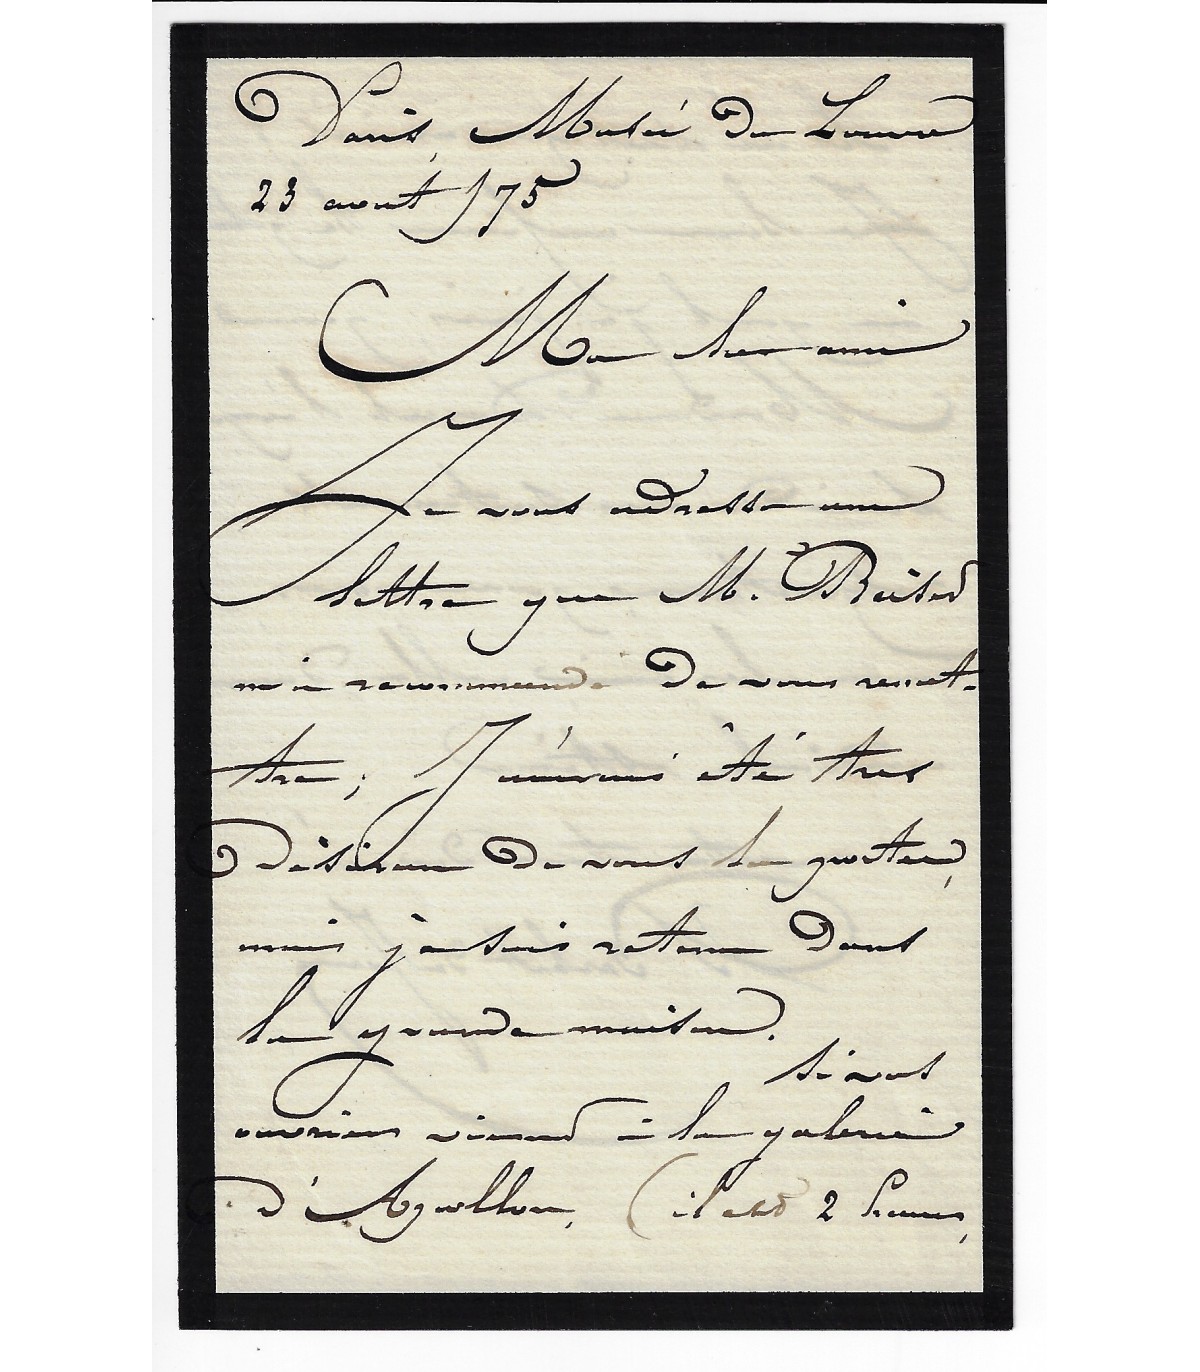 Paris, Musée du Louvre
23 aout /75
Mon cher ami
Je vous adresse une
lettre que M. Reiset
m'a recommandé de vous remet-
tre; J'aurais été tres
désireux de vous la porter,
mais je suis retenu dans
la grande maison.
si vos
ouvriers viennent à la galerie
d'Apollon, (il est 2 heures,